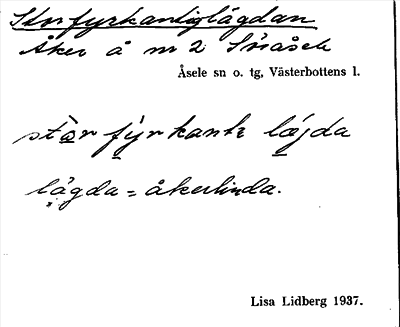 Storfyrkantiglägdan
Åker å nr 2 Småsele
Åsele sn o. tg, Västerbottens l.
stòr fýrkantı lægda
lägda = åkerlinda.
Lisa Lidberg 1937.